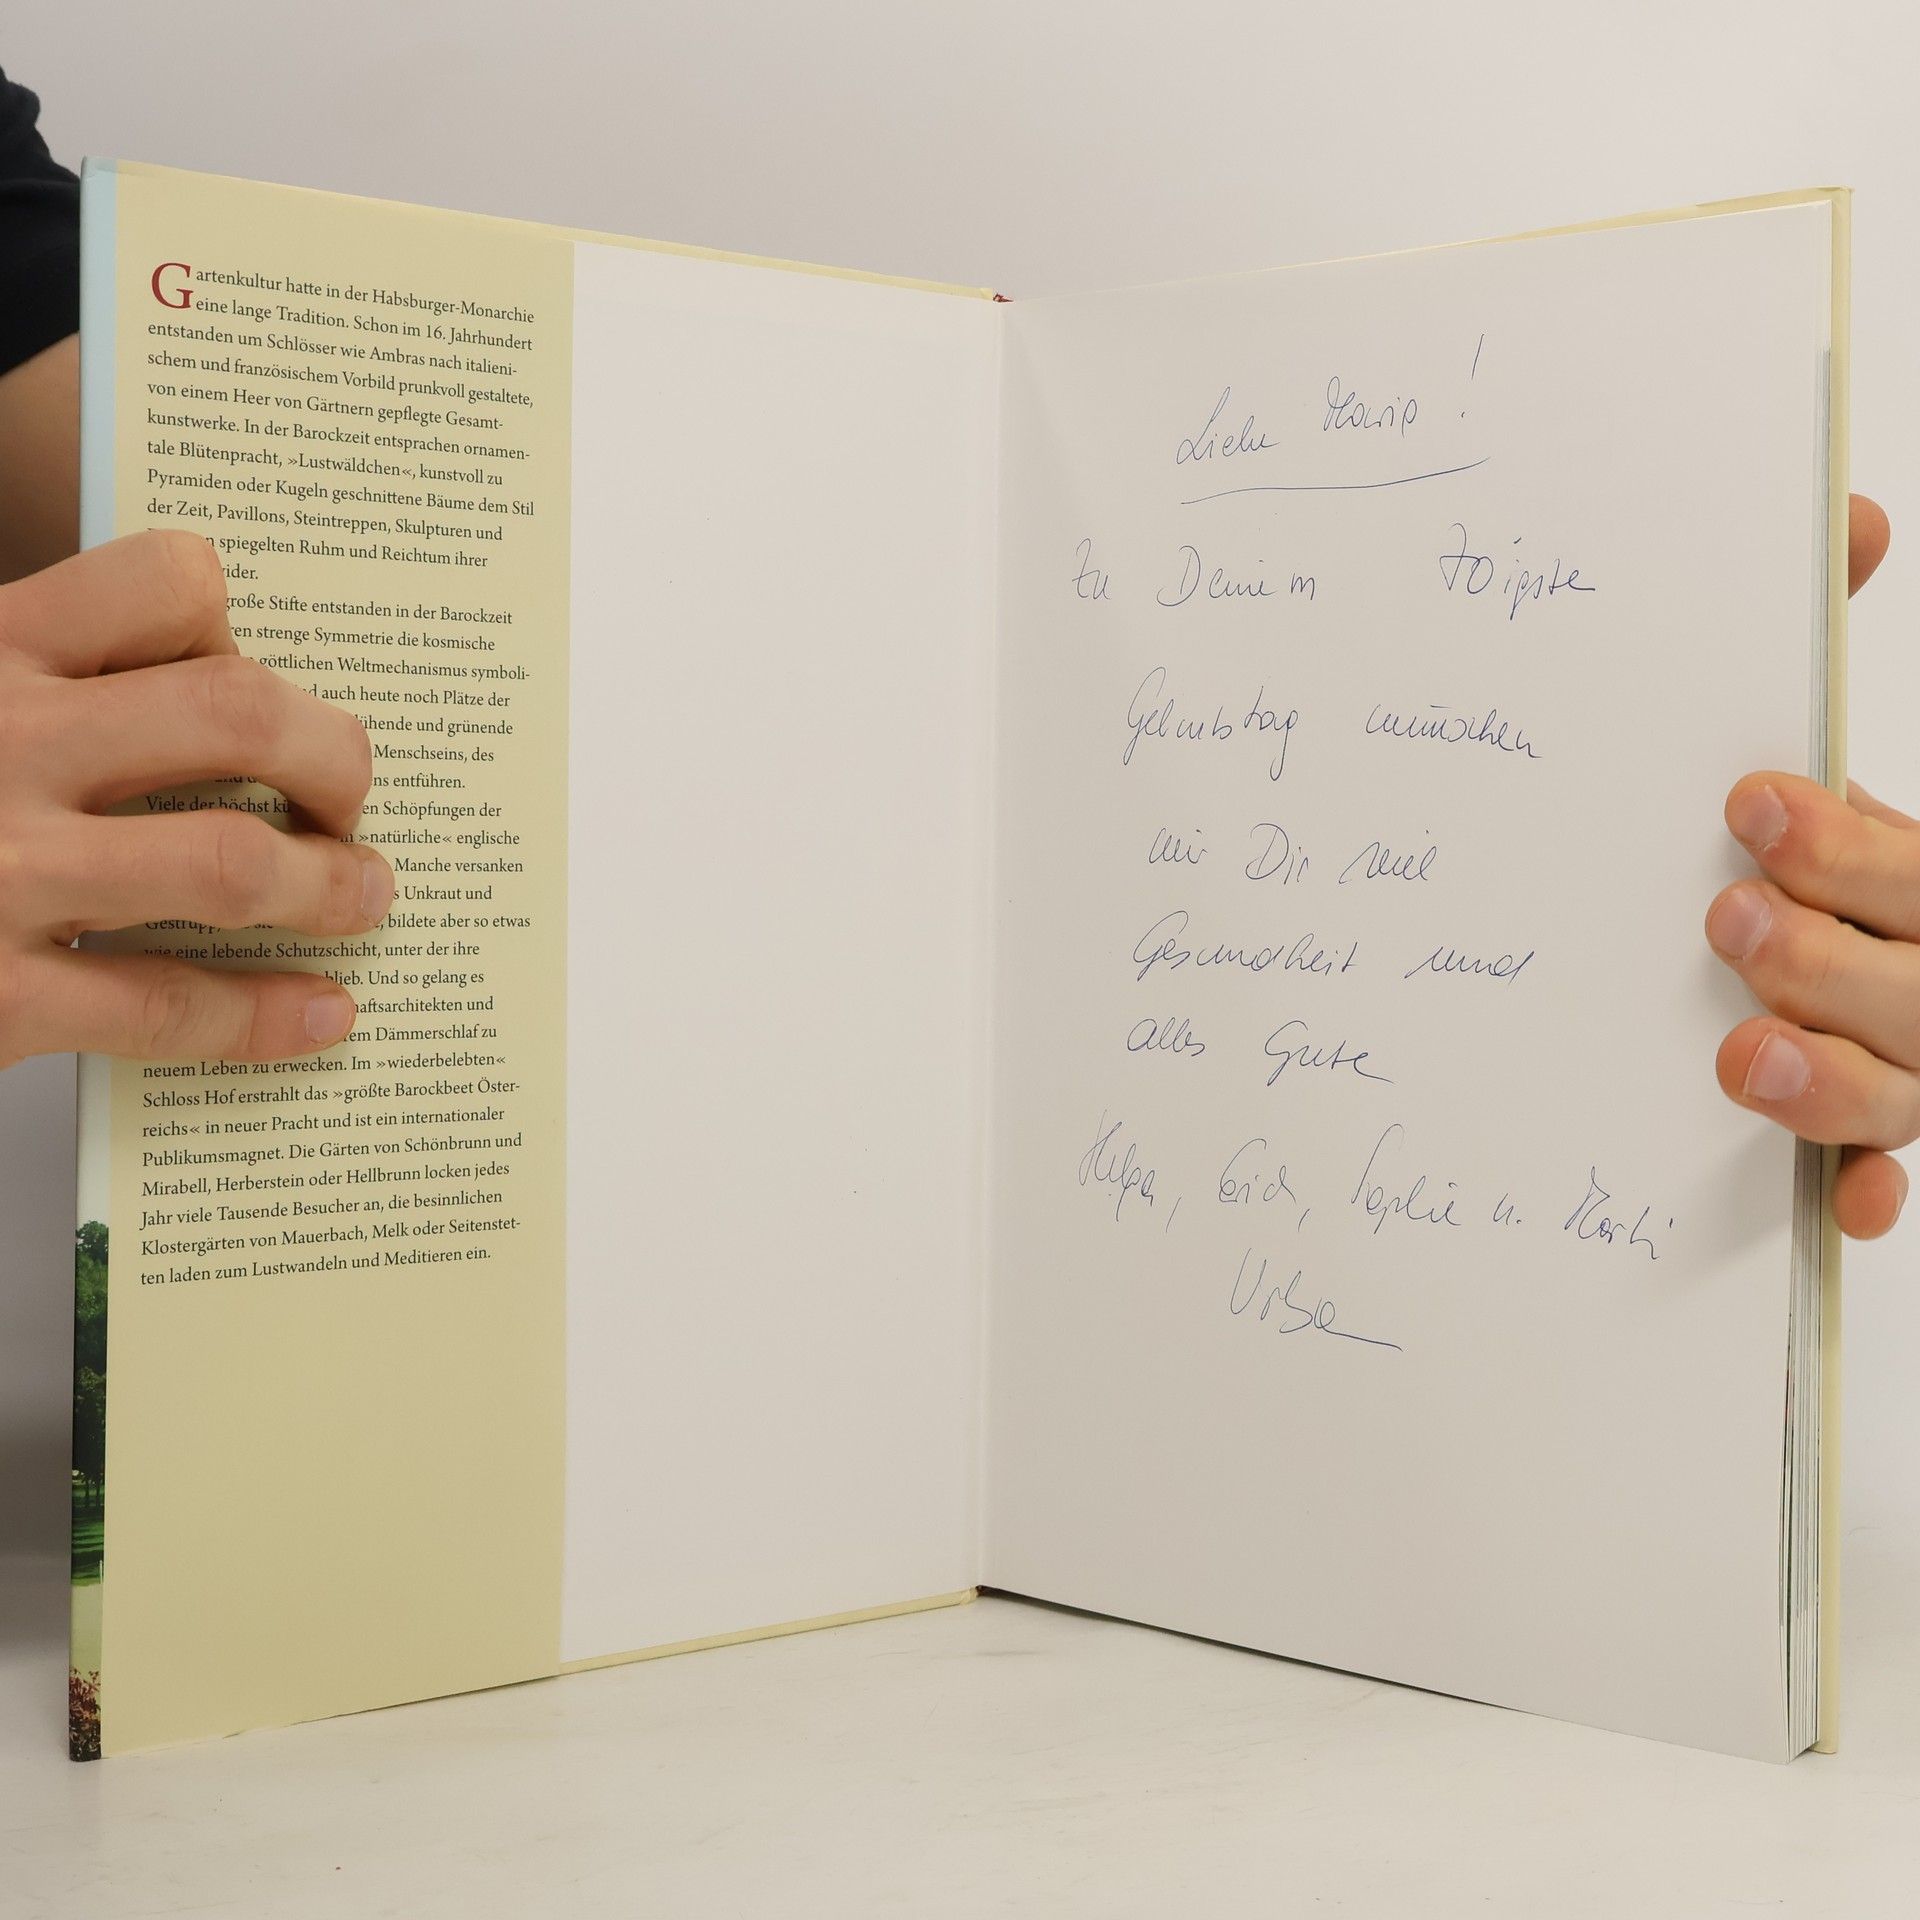 Gartenkultur hatte in der Habsburger-Monarchie
eine lange Tradition. Schon im 16. Jahrhundert
entstanden um Schlösser wie Ambras nach italieni-
schem und französischem Vorbild prunkvoll gestaltete,
von einem Heer von Gärtnern gepflegte Gesamt-
kunstwerke. In der Barockzeit entsprachen ornamen-
tale Blütenpracht, »Lustwäldchen«, kunstvoll zu
Pyramiden oder Kugeln geschnittene Bäume dem Stil
der Zeit, Pavillons, Steintreppen, Skulpturen und
spiegelten Ruhm und Reichtum ihrer
große Stifte entstanden in der Barockzeit
strenge Symmetrie die kosmische
göttlichen Weltmechanismus symboli-
auch heute noch Plätze der
und grünende
Menschseins, des
entführen.
Viele der höchst Schöpfungen der
»natürliche« englische
Manche versanken
Unkraut und
Gestrüpp, bildete aber so etwas
wie eine lebende Schutzschicht, unter der ihre
Und so gelang es
und
Dämmerschlaf zu
neuem Leben zu erwecken. Im »wiederbelebten«
Schloss Hof erstrahlt das »größte Barockbeet Öster-
reichs« in neuer Pracht und ist ein internationaler
Publikumsmagnet. Die Gärten von Schönbrunn und
Mirabell, Herberstein oder Hellbrunn locken jedes
Jahr viele Tausende Besucher an, die besinnlichen
Klostergärten von Mauerbach, Melk oder Seitenstet-
ten laden zum Lustwandeln und Meditieren ein.
Liebe Maria!
Zu Deinem 70igste
Geburtstag wünschen
wir Dir viel
Gesundheit und
alles Gute
Helga, Erich, Sophie u. Marti